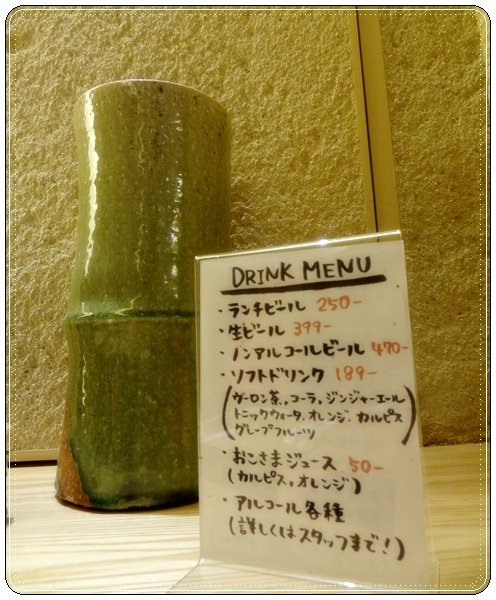 DRINK MENU
・ランチビール 250-
・生ビール 399-
・ノンアルコールビール 470-
・ソフトドリンク 189-
(ウーロン茶, コーラ, ジンジャーエール
トニックウォータ, オレンジ, カルピス
グレープフルーツ)
・おこさまジュース 50-
(カルピス, オレンジ)
・アルコール各種
(詳しくはスタッフまで!)